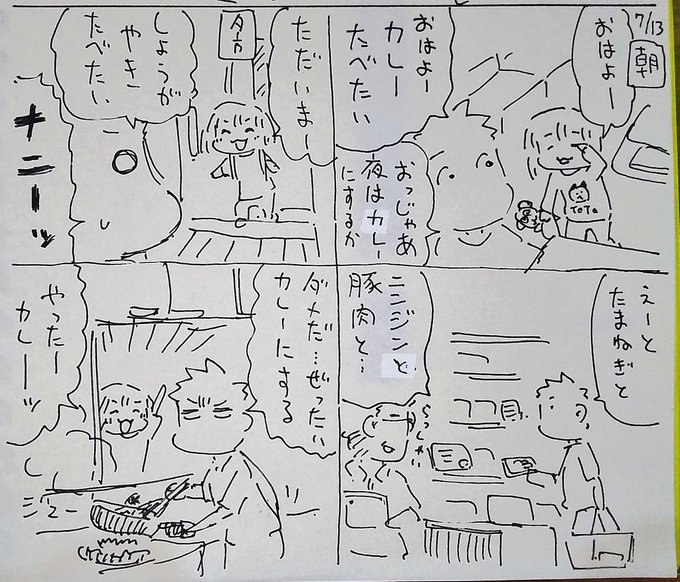 7/13
朝
おはよー
おはよー
カレー
たべたい
おっじゃあ
夜はカレー
にするか
TOTO
えーと
たまねぎと
ニンジンと
豚肉と…
らっしゃい
夕方
ただいまー
しょうが
やき
たべたい
ナニーッ
ダメだ…ぜったい
カレーにする
やったー
カレーッ
ジュー